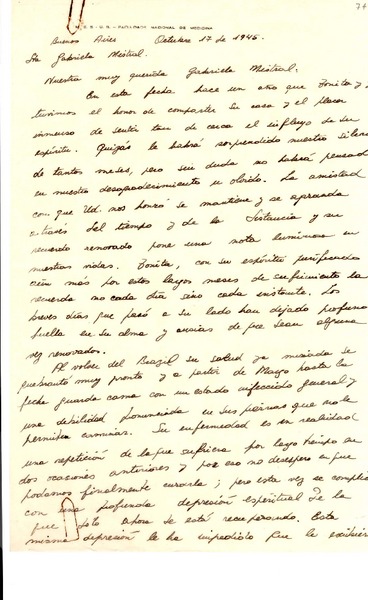 74
M. E. S. - U. B. - FACULDADE NACIONAL DE MEDICINA
Buenos Aires Octubre 17 de 1945.
Sta Gabriela Mistral.
Nuestra muy querida Gabriela Mistral:
En esta fecha hace un año que Bonita y yo
tuvimos el honor de compartir su casa y el placer
inmenso de sentir tan de cerca el influjo de su
espíritu. Quizás le habrá sorprendido nuestro silencio
de tantos meses, pero sin duda no habrá pensado
en nuestro desagradecimiento u olvido. La amistad
con que Ud. nos honró se mantiene y se agranda
a través del tiempo y de la distancia y su
recuerdo renovado pone una nota luminosa en
nuestras vidas. Bonita, con su espíritu purificado
aún más por estos largos meses de sufrimiento la
recuerda no cada día sino cada instante. Los
breves días que pasó a su lado han dejado profunda
huella en su alma y ansias de que sean alguna
vez renovados.
Al volver del Brazil su salud ya minada se
quebrantó muy pronto y a partir de Mayo hasta la
fecha guarda cama con un estado infeccioso general y
una debilidad pronunciada en sus piernas que no le
permiten caminar. Su enfermedad es en realidad
una repetición de la que sufriera por largo tiempo en
dos ocasiones anteriores y por eso no desespero en que
podamos finalmente curarla; pero esta vez se complicó
con una profunda depresión espiritual de la
que solo ahora se está recuperando. Esta
misma depresión le ha impedido que le escribiera